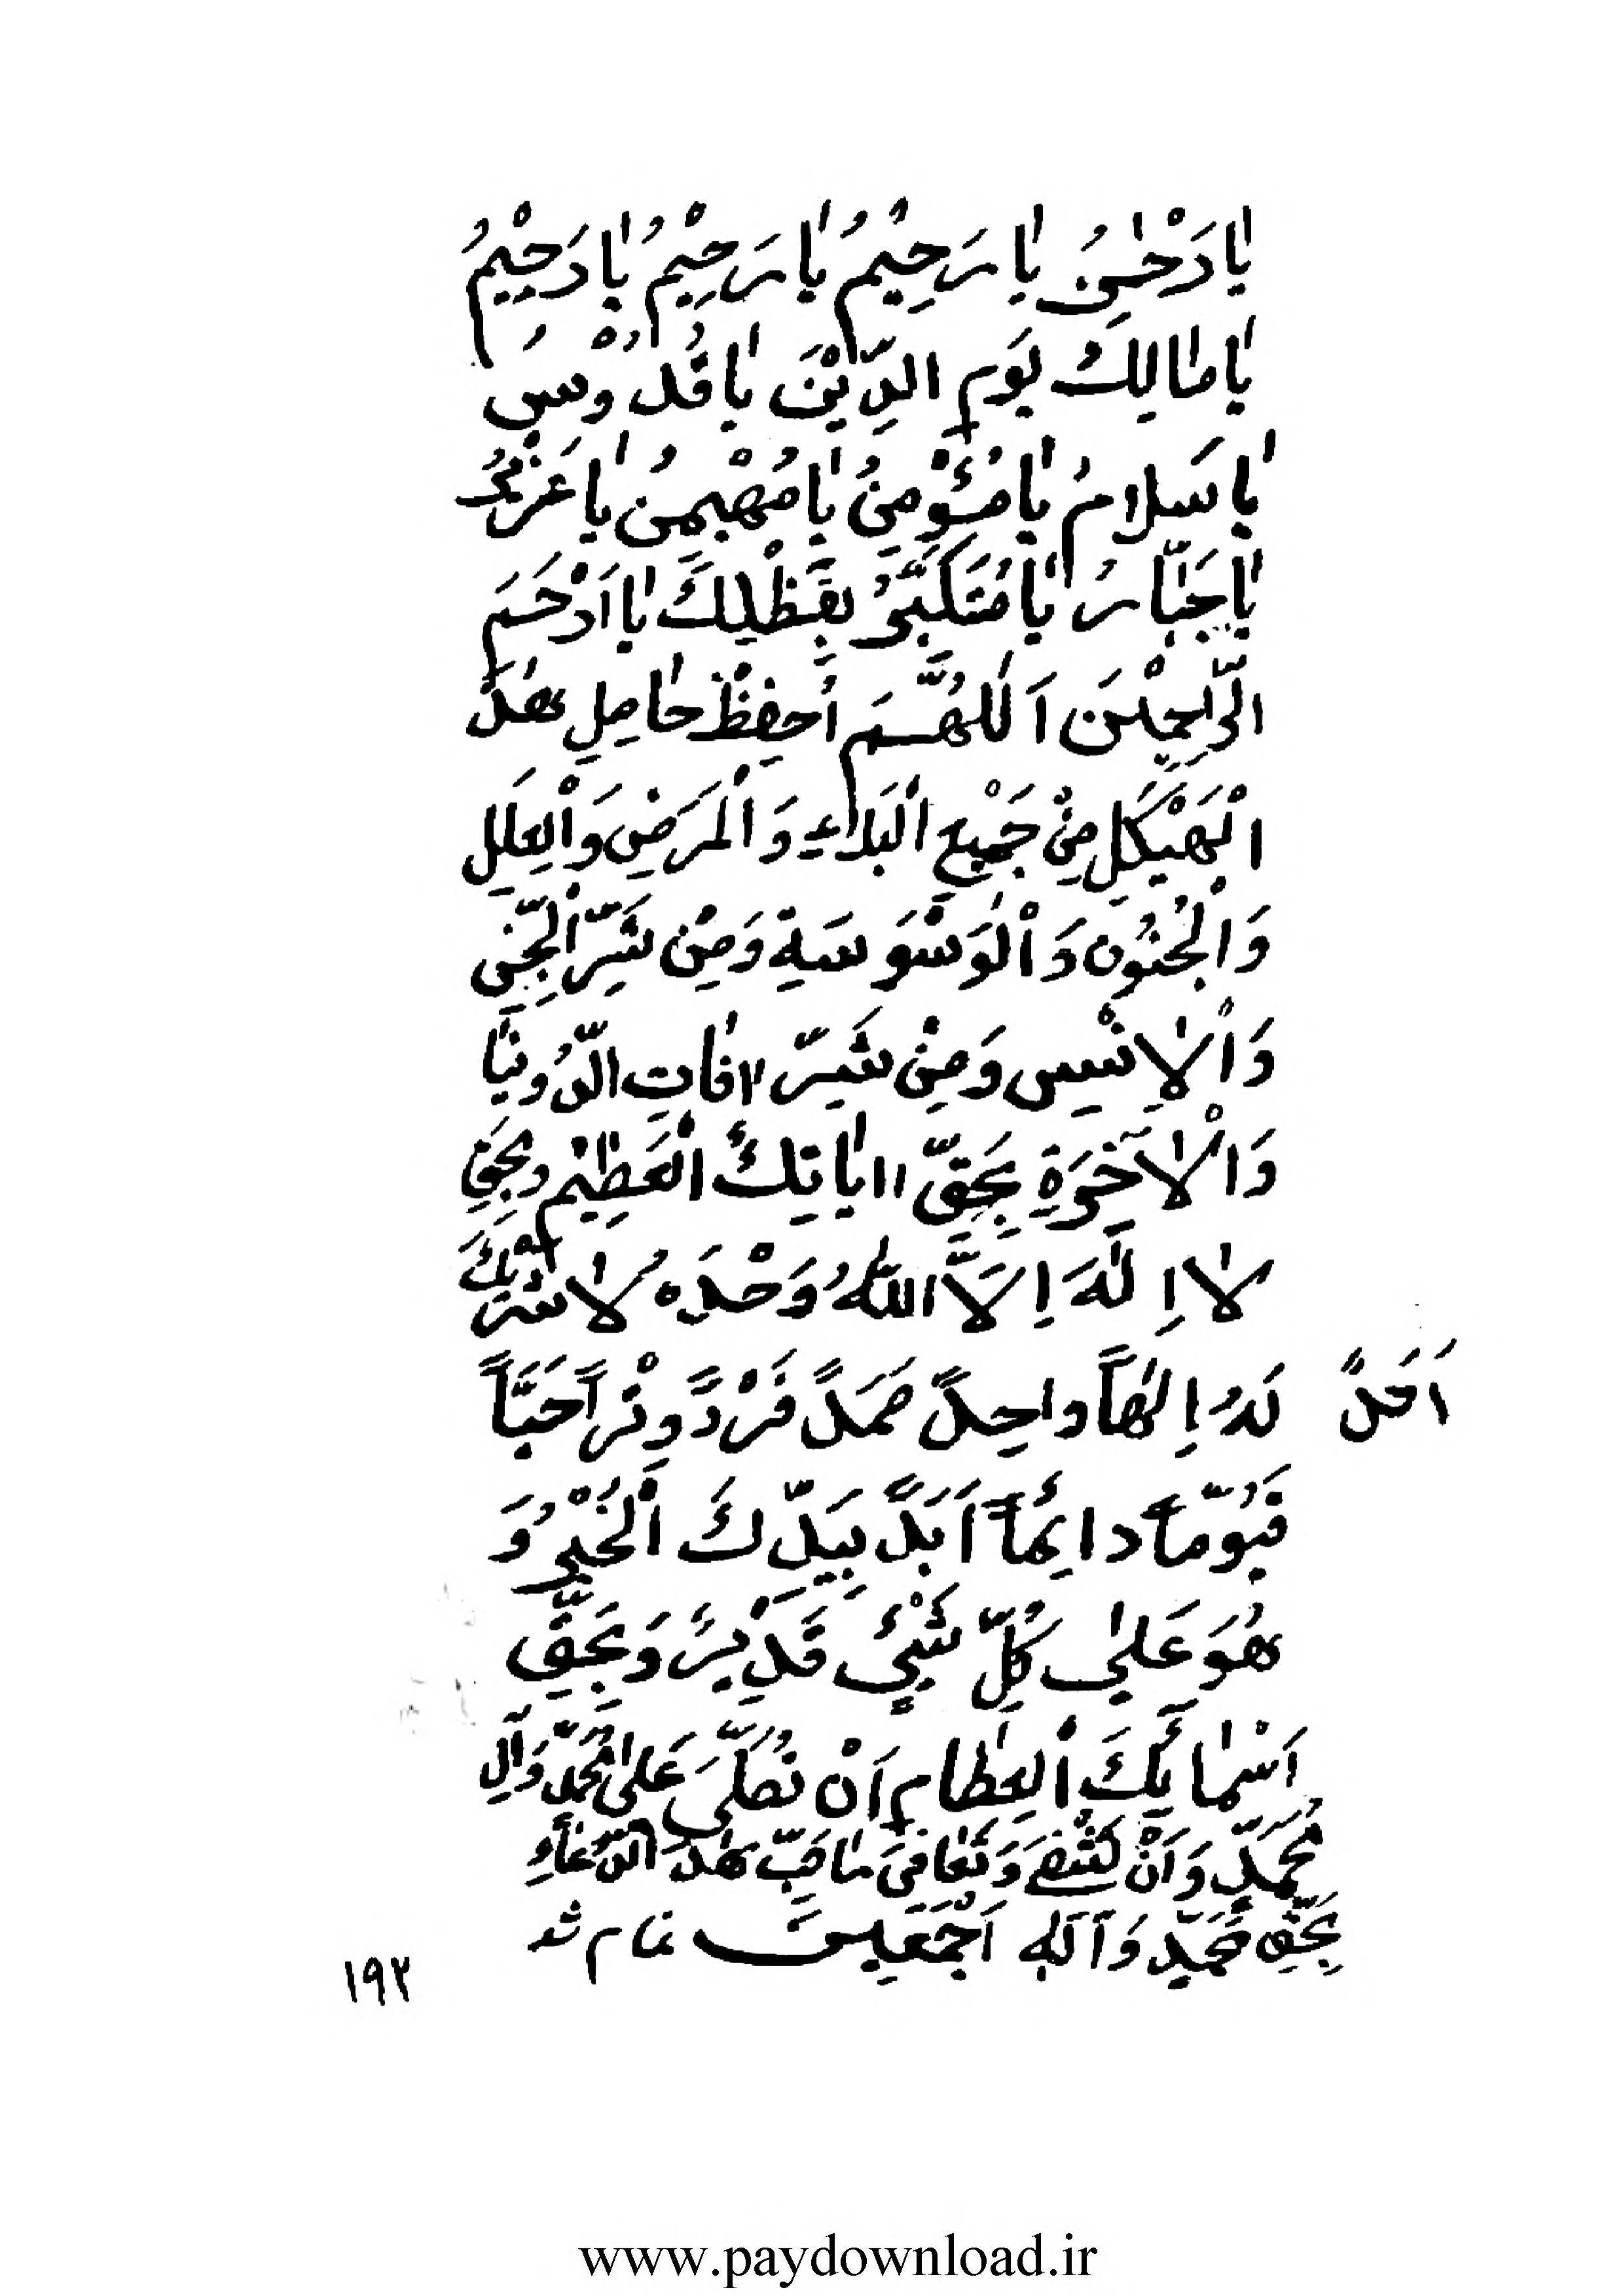 یٰا رَحْمٰنُ یٰا رَحِیْمُ یٰا رَحِیْمُ یٰا رَحِیْمُ
یٰا مٰالِكَ یَومِ الدِّیْنَ یٰا قُدُّوْسُ
یٰا سَلامُ یٰا مُؤْمِنُ یٰا مُهْیمِنُ یٰا عَزْیزُ
یٰا جَبّٰارُ یٰا مُتَكَبِّرُ بِفَضْلِكَ یٰا اَرْحَمَ
الرّٰحِمْیَن اَللّٰهُمَّ اُحفِظْ حٰامِلِ هٰذَ
الْهَیْكَلِ مِنْ جَمْیعِ الْبَلاٰءِ وَ الْمَرَضِ وَ الْعِلَلِ
وَ الْجُنُونِ وَ الْوَسْوَسَةِ وَ مِنْ شَرِّ الْجِّنِ
وَ الْاِنْسِ وَ مِنْ شَرِّ افٰاتِ الدُّونیٰا
وَ الْاٰخِرَةِ بِحَقِّ ایٰاتِكَ الْعَظِیْم وبِحَقِ
لاٰ اِلٰهَ اِلاَّ اللّٰهُ وَحْدَه لاٰ شَریْكَ
لَهُ اِلٰهاً واحِدً صَمَدً فَرْدً وِتْراً حَیّاً اَحَدً
قَیُوّماً دائِماً اَبَدً بِیَدِّكَ الْخَیْرُ وَ
هُوَ عَلٰی كُلِّ شَیْئٍ قَدِیْرً وَ بِحَقِّ
اَسْمٰایِٔكَ الْعِظٰامِ اَنْ تُصَلَّیَ عَلٰی مُحَمَّدٍ وَ آلِ
مُحَمَّدٍ وَ اَنْ تَشْفِےَ وَ تَعٰافیَ هٰذَ الدُّعٰاءِ
بِحَقِّ مُحَمَّدٍ وَ آلَهِ اَجْمَعِینَ تمام شد
۱۹۲
www.paydownload.ir